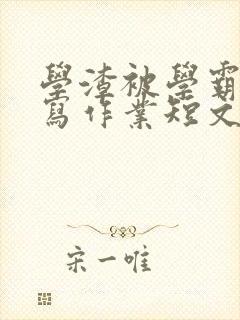 學渣被學霸
寫作業短文
宋一唯